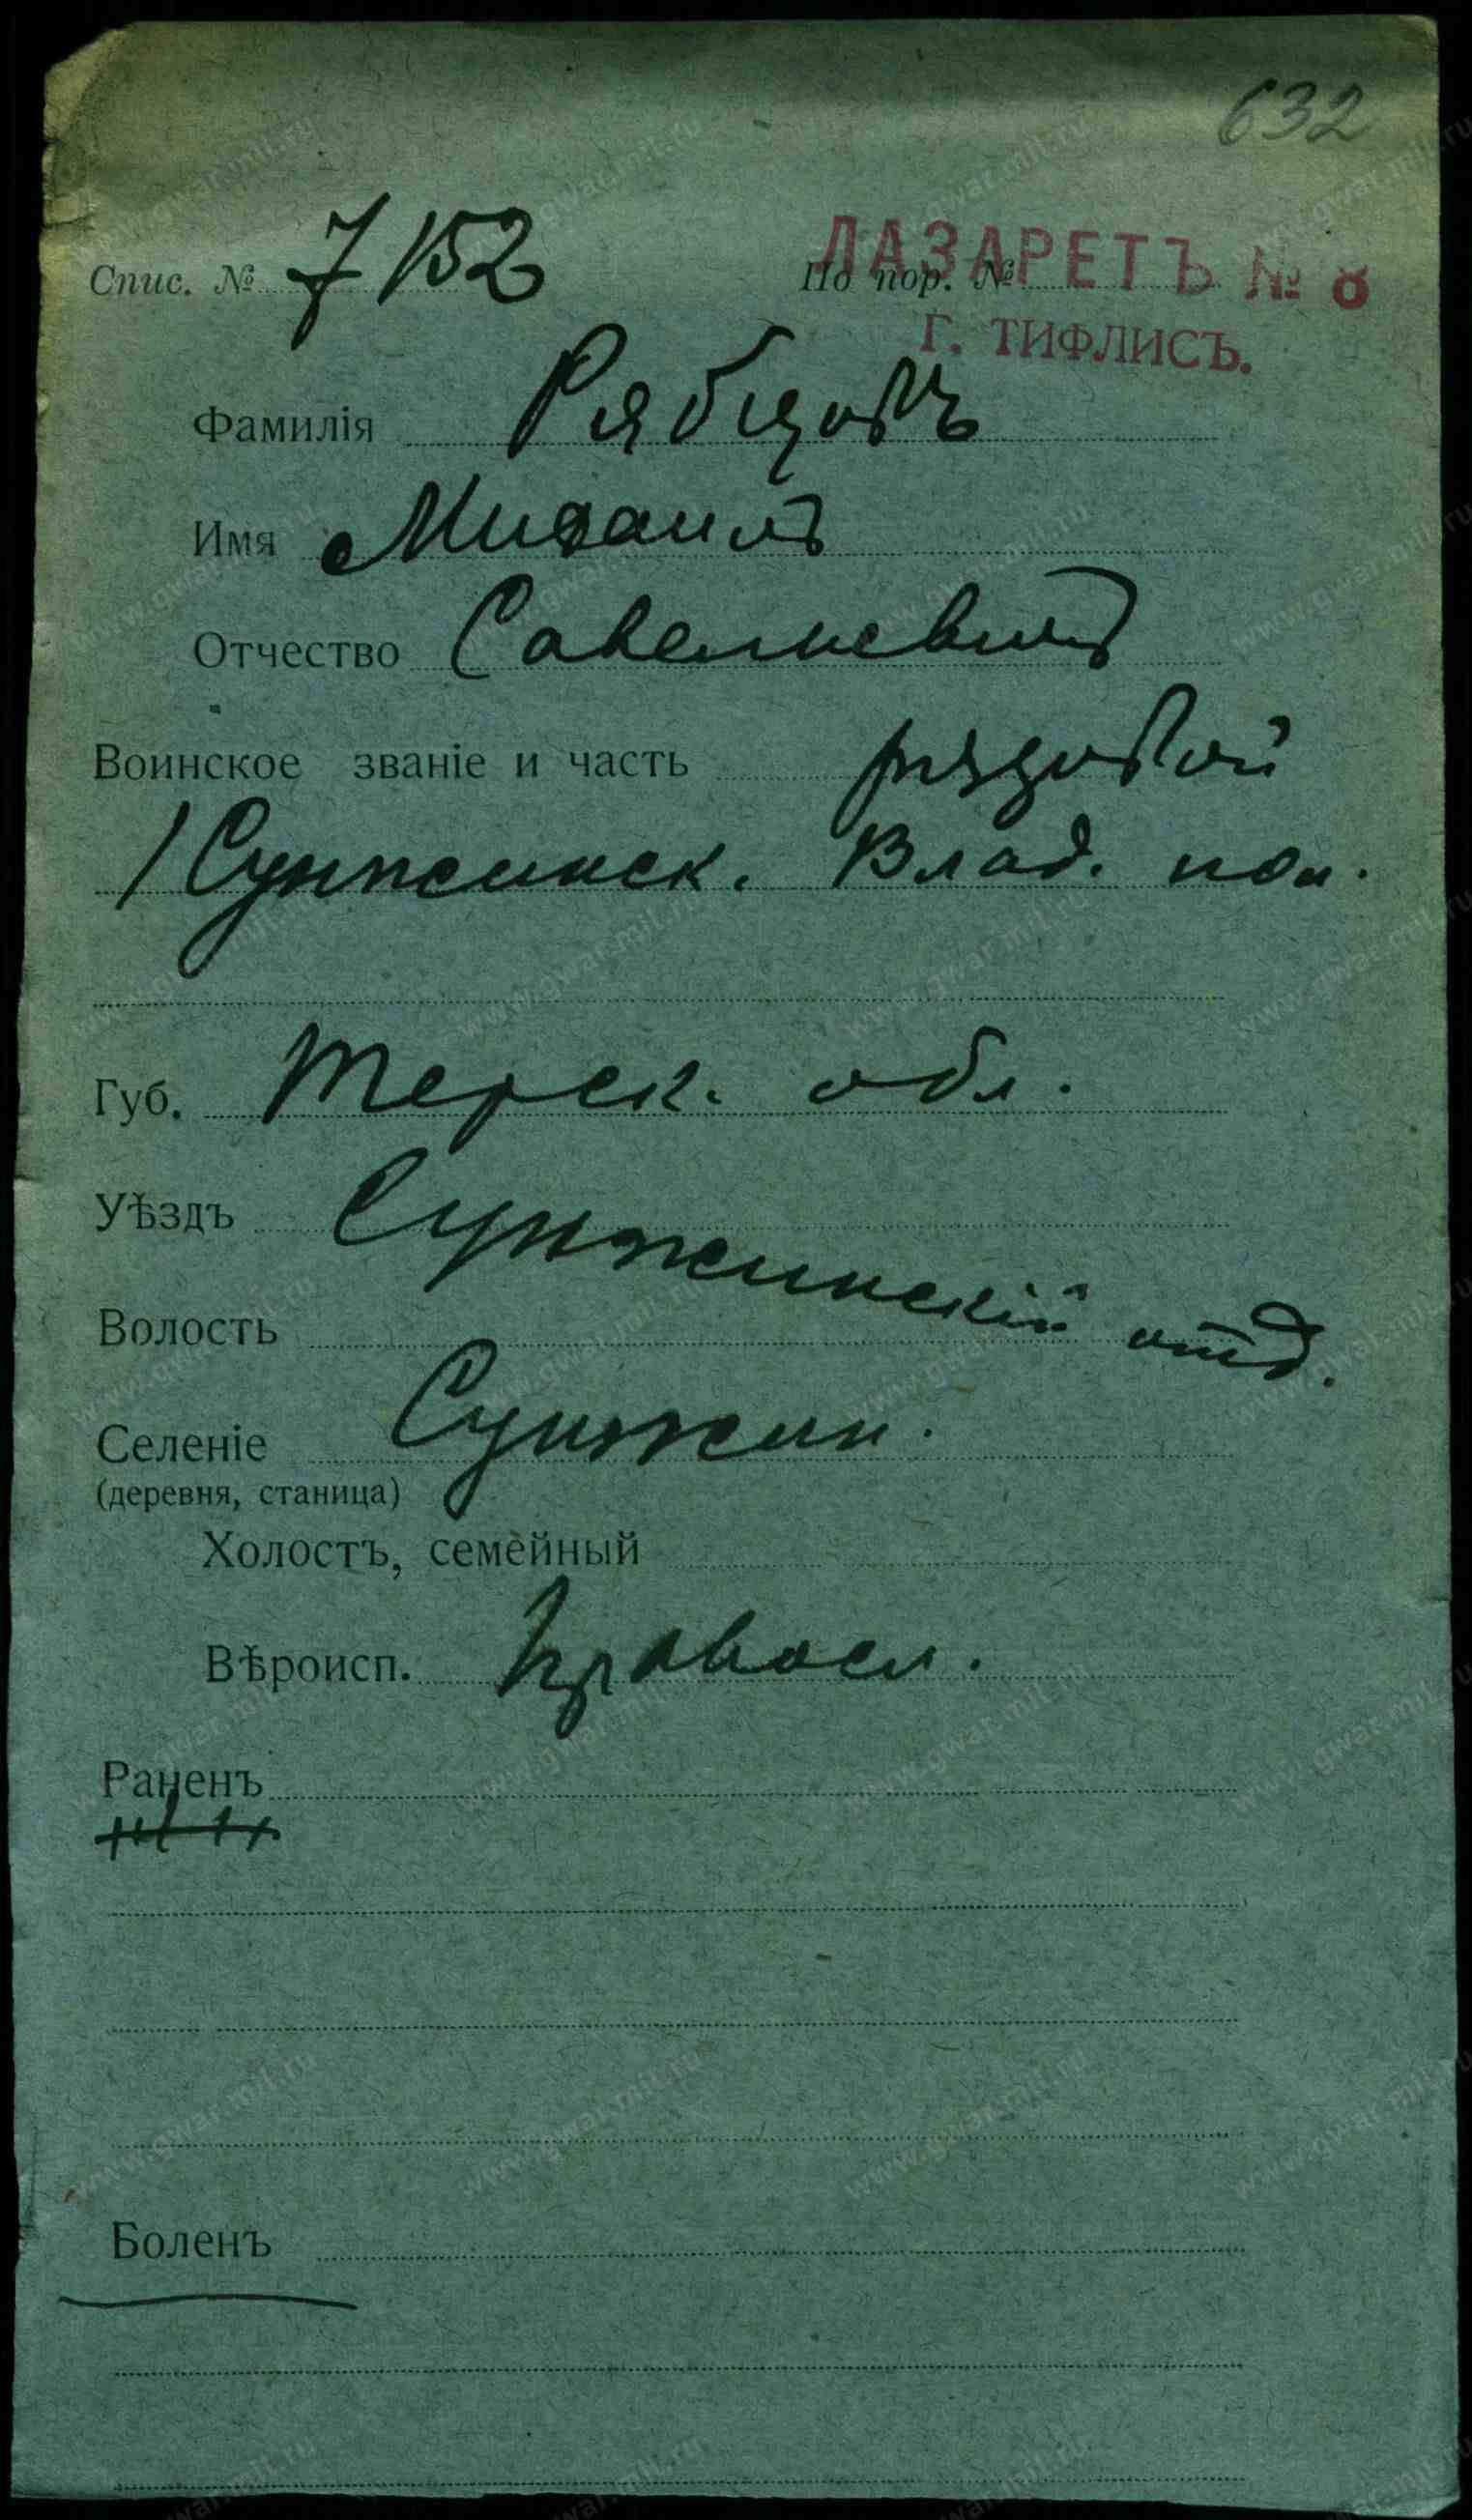 632
Спис. № 7152
По пор. №
ЛАЗАРЕТЪ № 8
Г. ТИФЛИСЪ.
Фамилія Рябцовъ
Имя Михаилъ
Отчество Савельевичъ
Воинское званіе и часть рядовой
1 Сунженск. Влад. пол.
Губ. Терск. обл.
Уѣздъ Сунженскій отд.
Волость
Селеніе Сунжен.
(деревня, станица)
Холостъ, семейный
Вѣроисп. Правосл.
Раненъ
Боленъ
www.gwar.mil.ru